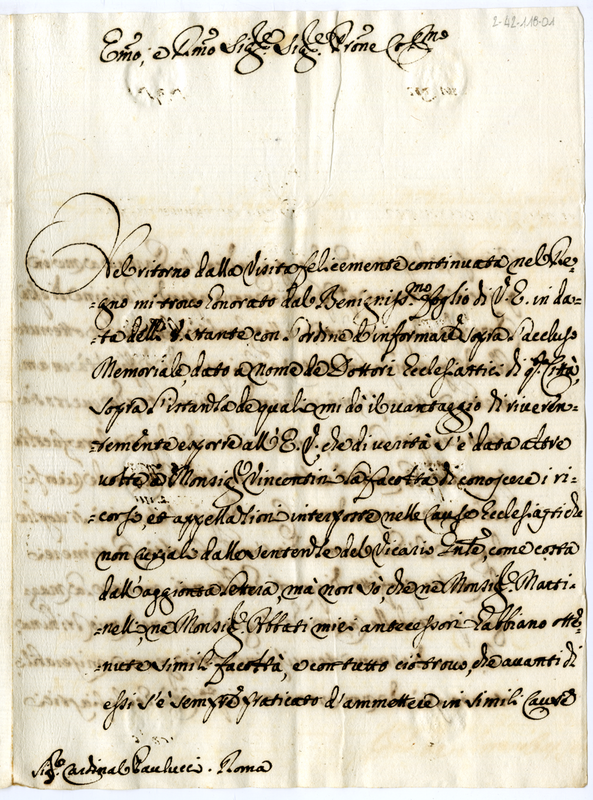 2-42-118-01
Emo, e Rmo Sigr. Sigr. Prone Colmo
Nel ritorno dalla Visita felicemente continuata nel Re-
-gno mi trovo honorato dal Benigniss.mo foglio di V. E. in da-
-ta delli V. stante con l'ordine d'informare sopra l'accluso
Memoriale, dato a nome de Dottori Ecclesiastici di q.ta Città,
sopra l'istanza de quali mi dò il vantaggio di riveren-
-temente esporre all'E. V. che di verità s'è data altre
volte à Monsigr. Vincentini la facoltà di conoscere i ri-
-corsi, et appellationi interposte nelle Cause Ecclesiastiche
non cusiale dalle sentenze del Vicario Gnle, come costa
dall'aggionta lettera, mà non sò, che ne Monsigr. Marti-
-nelli, ne Monsigr. Abbati miei antecessori habbiano otte-
-nute simili facoltà, e con tutto ciò trovo, che avanti di
essi s'è sempre praticato d'ammettere in simili Cause
Sigr. Cardinal Paulucci. Roma